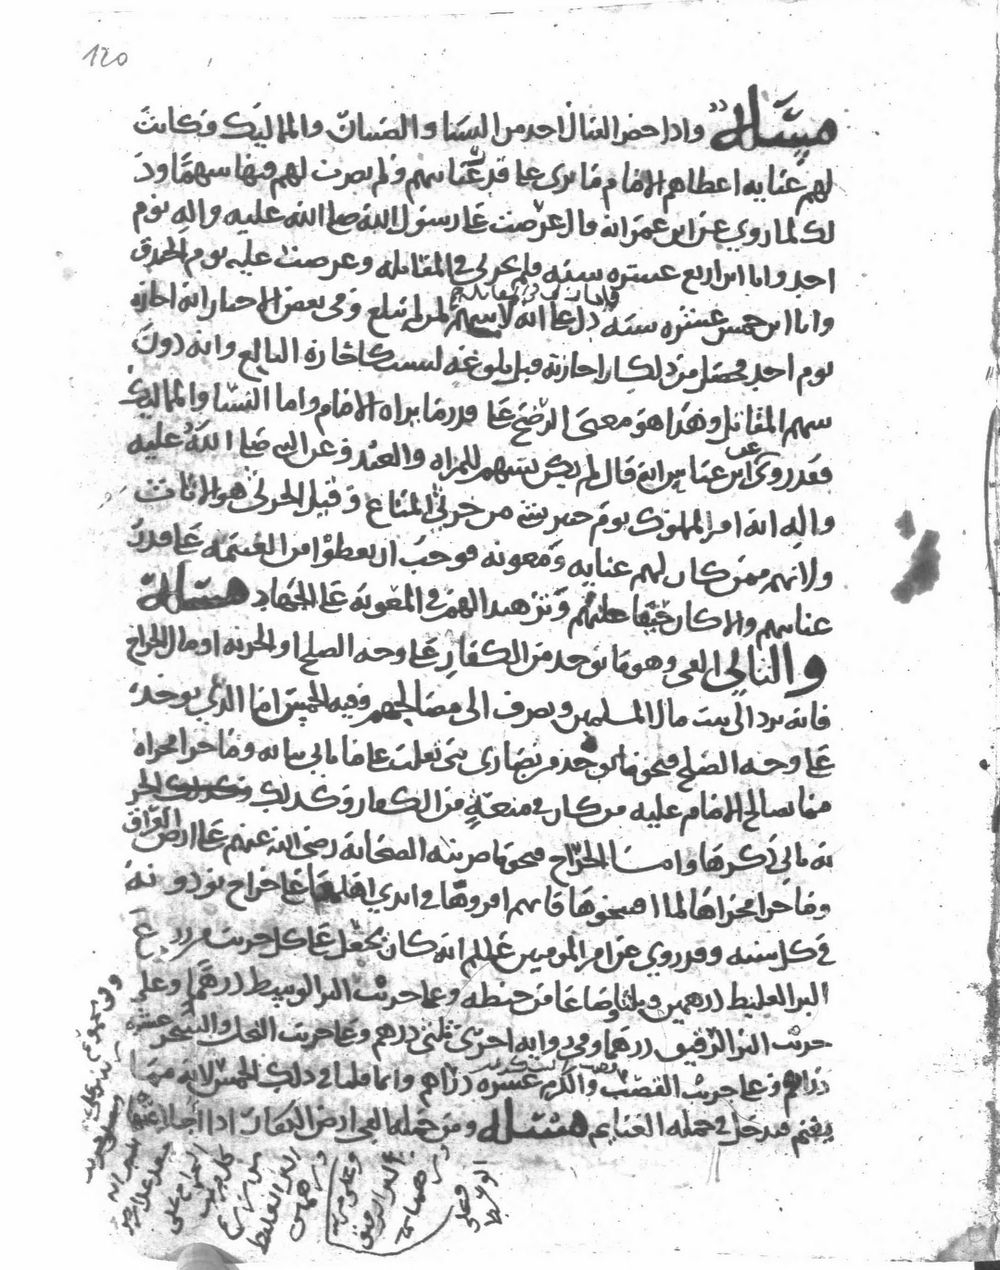 120
مسئلة واذا حضر القتال احد من النسا والصبيان والمماليك وكانت
لهم عنايه اعطاهم الامام ما يرى على قدر عنايتهم ولم يصرف لهم فيها سهما وذ
لك لما روي عن ابن عمر انه قال عرضت على رسول الله صلى الله عليه واله يوم
احد وانا ابن اربع عشره سنه فلم يجزني في المقاتله وعرضت عليه يوم الخندق
وانا ابن خمس عشره سنة دل على انه لا يسهم لمن لم يبلغ وفي بعض الاخبار انه اجازه
يوم احد فحصل من ذلك ان اجازته قبل بلوغه ليست كاجازة البالغ وانه دون
سهم المقاتل وهذا هو معنى الرضخ على قدر ما يراه الامام واما النسا والمماليك
فقد روي عن ابن عباس انه قال لم يكن يسهم للمراه والعبد وعن النبي صلى الله عليه
واله انه امر للمملوك يوم حنين بشي من خرثي المتاع وقيل الخرثي هو الاثاث
ولانهم ممن كان لهم عنايه ومعونه فوجب ان يعطوا من الغنيمه على قدر
عنايتهم والا كان حيفا عليهم وتزهيدا لهم في المعونة على الجهاد مسئلة
والثاني الفي وهو ما يوخذ من الكفار على وجه الصلح او الجزيه او مال الخراج
فانه يرد الى بيت مال المسلمين ويصرف الى مصالحهم وفيه الخمس اما الذي يوخذ
على وجه الصلح فنحو ما يوخذ من نصارى بني تغلب على ما ياتي بيانه وما جرا مجراه
مما يصالح الامام عليه من كان في منعة من الكفار وكذلك الجز
يه ياتي ذكرها واما الخراج فنحو ما ضربته الصحابة رضي الله عنهم على ارض العراق
وما جرا مجراها لما افتتحوها فانهم اقروها في ايدي اهلها على خراج يودونه
في كل سنه وقد روي عن امير المومنين علي انه كان يجعل على كل جريب من زرع
البر الغليظ درهمين وثلثا وصاعا من حنطه وعلى جريب البر الوسيط درهما وعلى
جريب البر الرقيق درهما وفي روايه اخرى ثلثي درهم وعلى جريب النخل والشجر عشرة
دراهم وعلى جريب القصب والكرم عشرة دراهم وانما قلنا في ذلك الخمس لانه مما
يغنم فيدخل في جمله الغنايم مسئلة ومن جمله الفي ارض الكفار اذا اجلا عنها